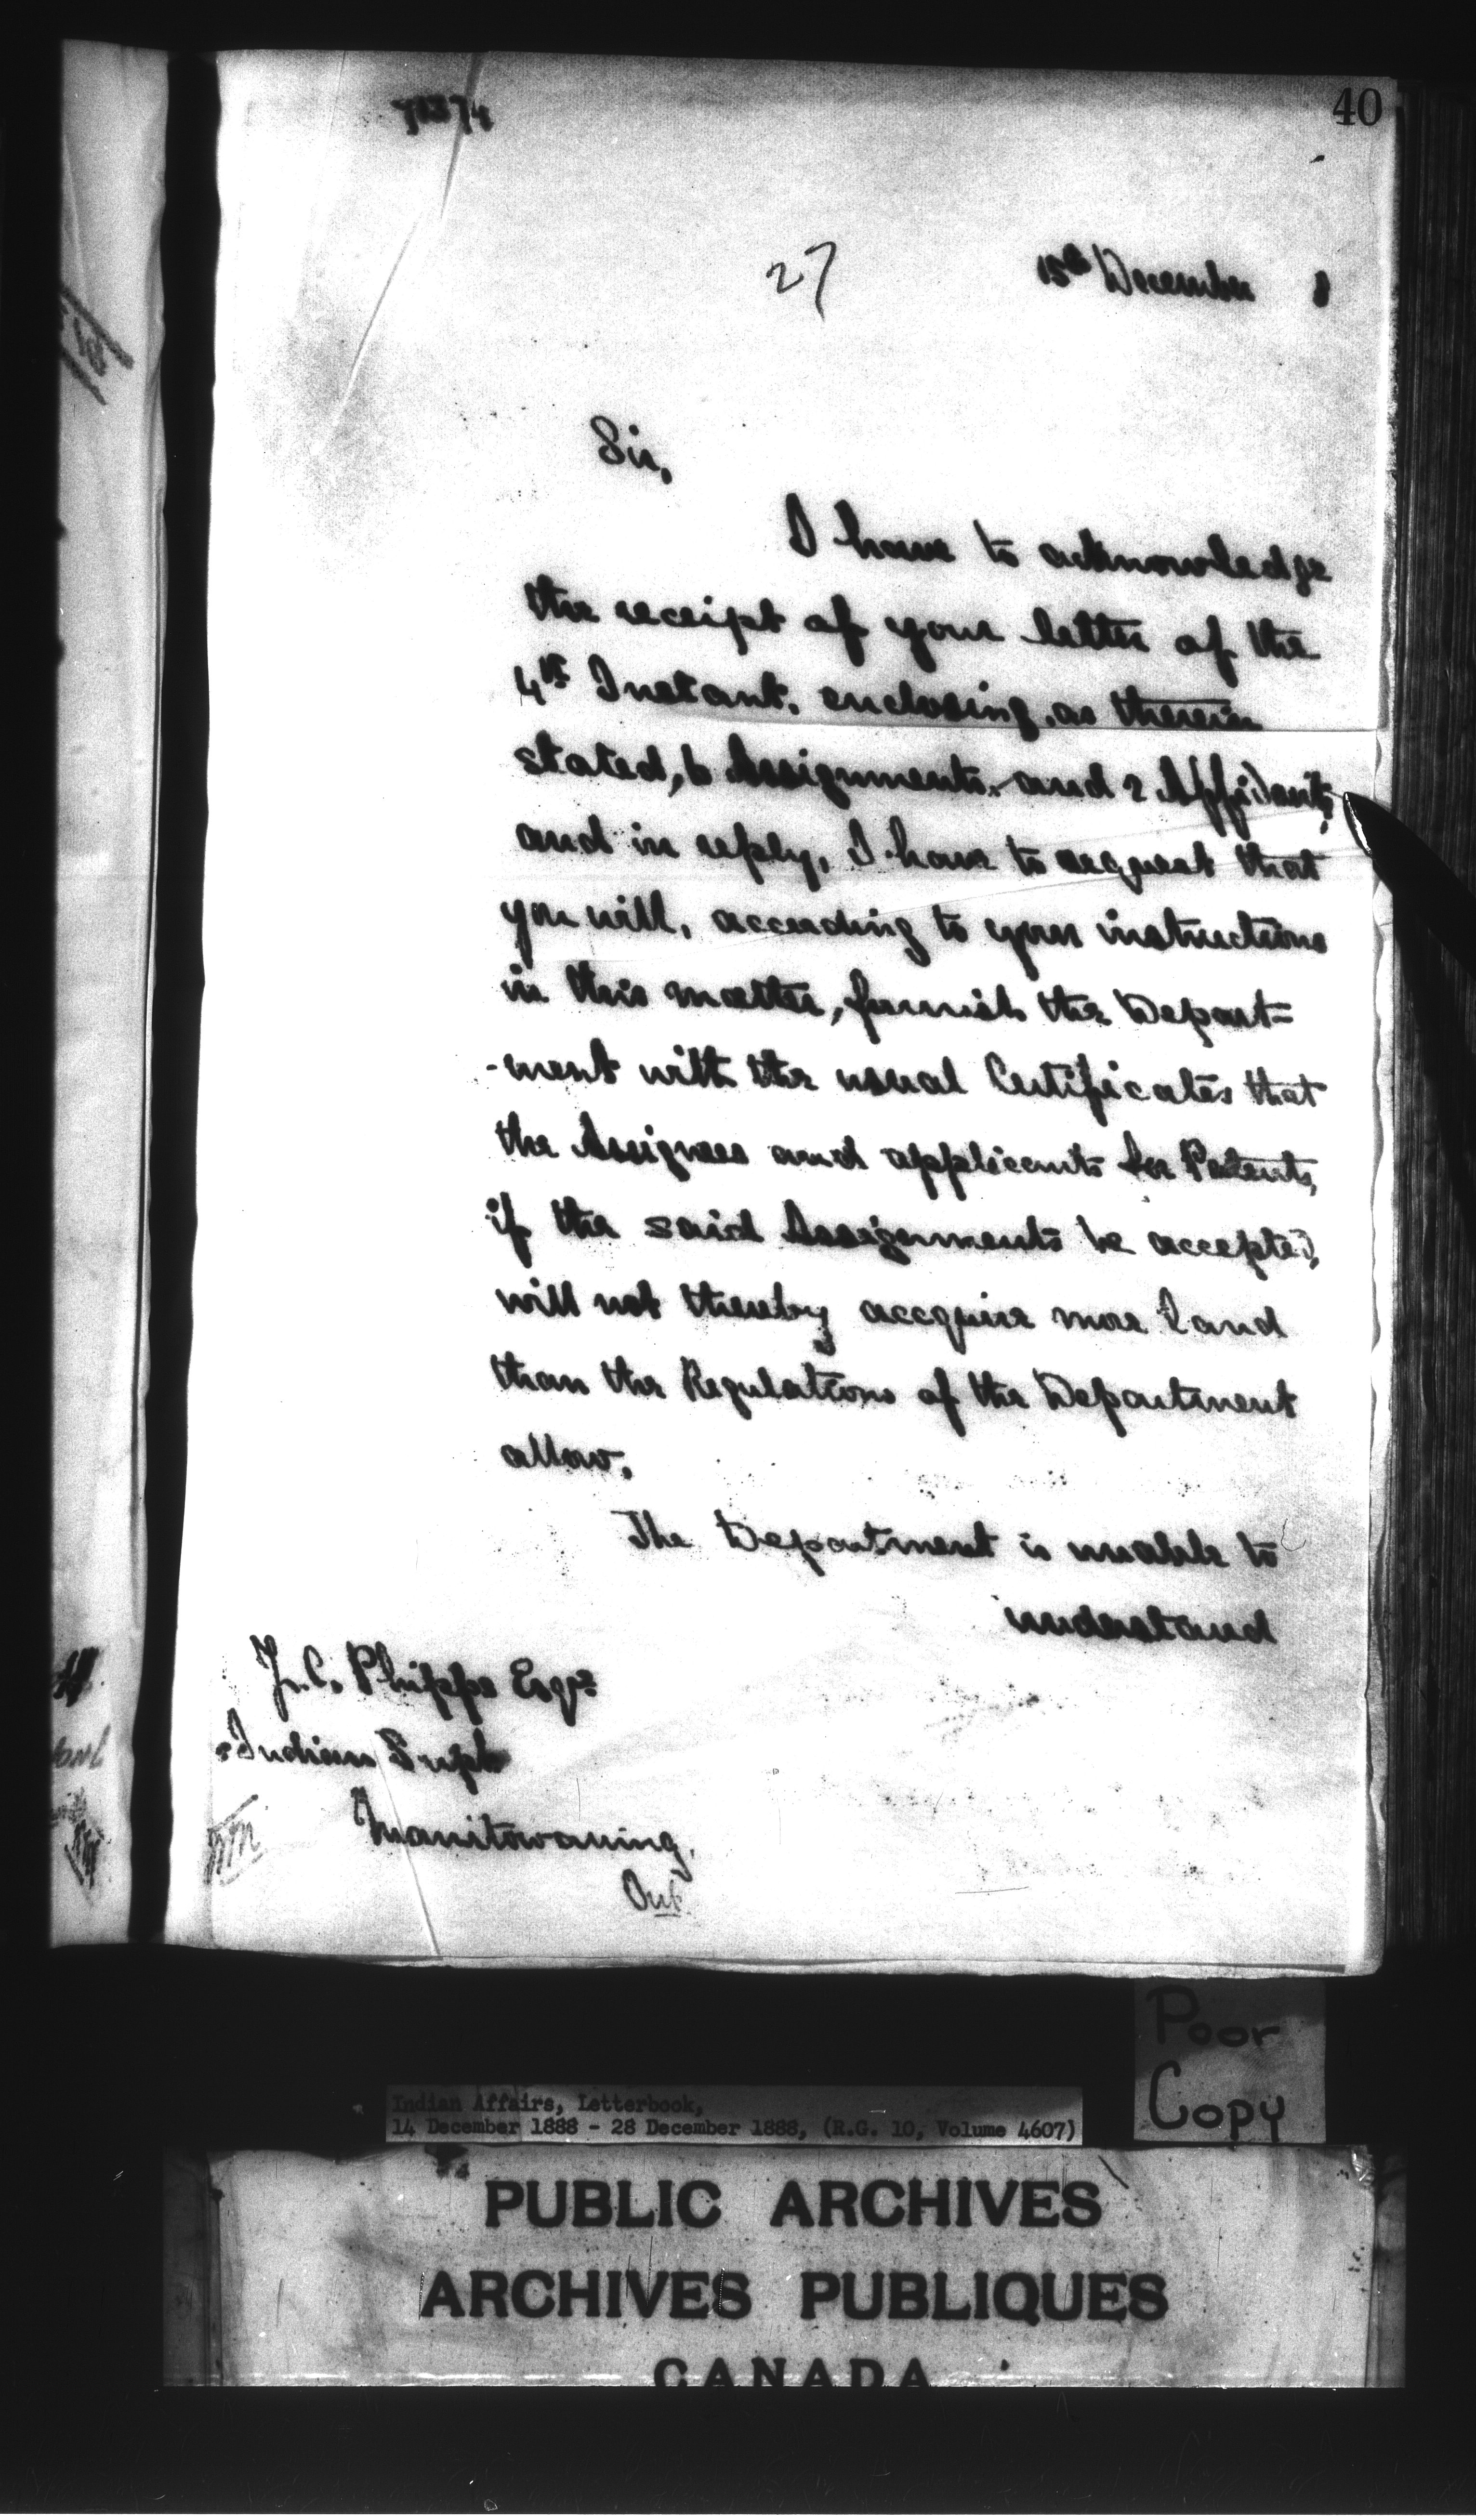 40
27
15th December 8
Sir,
I have to acknowledge
the receipt of your letter of the
4th Instant, enclosing, as therein
stated, 6 Assignments, and 2 Affidavits,
and in reply, I have to request that
you will, according to your instructions
in this matter, furnish the Depart=
-ment with the usual Certificates that
the Assignees and applicants for Patents,
if the said Assignments be accepted,
will not thereby accquire more Land
than the Regulations of the Department
allow.
The Department is unable to
understand
J.C. Phipps Esqre
Indian Supt
Manitowaning.
Ont
Poor
Copy
Indian Affairs, Letterbook,
14 December 1888 - 28 December 1888, (R.G. 10, Volume 4607)
PUBLIC ARCHIVES
ARCHIVES PUBLIQUES
CANADA